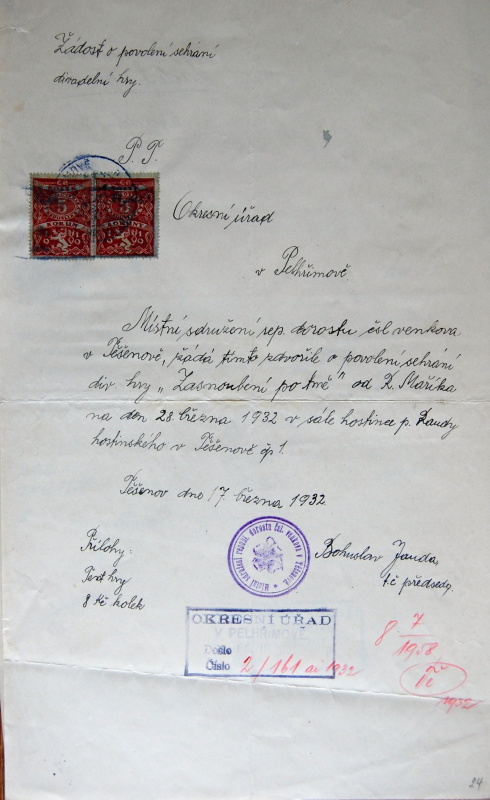 Žádost o povolení sehrání
divadelní hry.
P. T.
Okresní úřad
v Pelhřimově
Místní sdružení rep. dorostu čsl. venkova
v Těšenově, žádá tímto zdvořile o povolení sehrání
div. hry „Zasnoubení po tmě" od R. Maříka
na den 28. března 1932 v sále hostince p. Daudy
hostinského v Těšenově čp 1.
Těšenov dne 17. března 1932.
Přílohy:
Text hry
8 Kč kolek
Bohuslav Janda,
t.č. předseda.
OKRESNÍ ÚŘAD
V PELHŘIMOVĚ
Došlo
Číslo 2/161 ai 1932
8 7/1958
1932
24